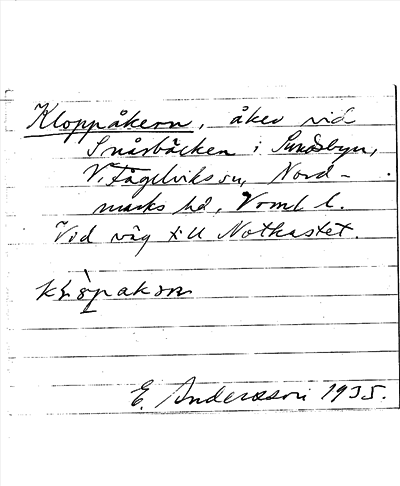 Kloppåkern, åker vid
Snårbäcken i Sundsbyn,
V. Fågelviks sn, Nord-
marks hd, Vrml l.
Vid väg till Notkastet.
E. Andersson 1935.